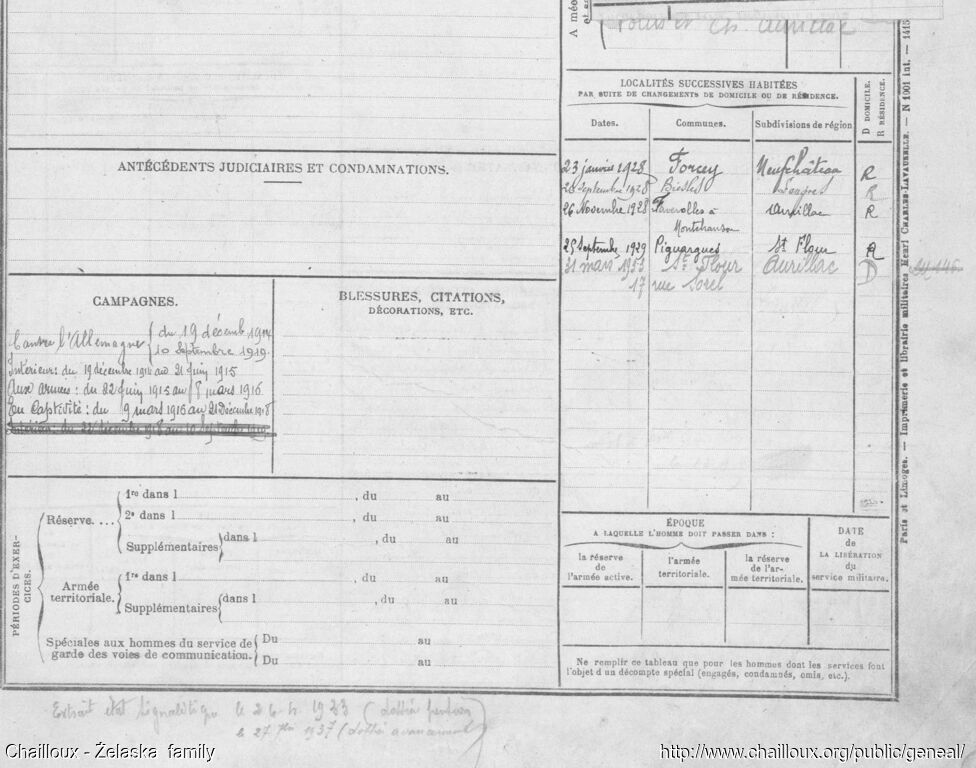 A méo
Aurillac
LOCALITÉS SUCCESSIVES HABITÉES
PAR SUITE DE CHANGEMENTS DE DOMICILE OU DE RÉSIDENCE.
D DOMICILE.
R RÉSIDENCE.
Dates.
Communes.
Subdivisions de région
23 janvier 1928 Forcey Neufchâteau R
28 Septembre 1928 Biesles Langres R
26 Novembre 1928 Faverolles à Montchanson Aurillac R
25 Septembre 1929 St Flour R
31 mars 1933 St Flour Aurillac D
17 rue Sorel
ANTÉCÉDENTS JUDICIAIRES ET CONDAMNATIONS.
CAMPAGNES.
Contre l'Allemagne du 19 décemb 1914
10 Septembre 1919.
Intérieur : du 19 décembre 1914 au 21 juin 1915
Aux armées : du 22 juin 1915 au 8 mars 1916
En Captivité : du 9 mars 1916 au 21 Décembre 1918
BLESSURES, CITATIONS,
DÉCORATIONS, ETC.
PÉRIODES D'EXER-
CICES.
Réserve....
1re dans l , du au
2e dans l , du au
Supplémentaires dans l , du au
Armée
territoriale.
1re dans l , du au
Supplémentaires dans l , du au
Spéciales aux hommes du service de
garde des voies de communication.
Du au
Du au
ÉPOQUE
A LAQUELLE L'HOMME DOIT PASSER DANS :
la réserve
de
l'armée active.
l'armée
territoriale.
la réserve
de l'ar-
mée territoriale.
DATE
de
LA LIBÉRATION
du
service militaire.
Ne remplir ce tableau que pour les hommes dont les services font
l'objet d un décompte spécial (engagés, condamnés, omis, etc.).
Paris et Limoges. — Imprimerie et librairie militaires Henri CHARLES-LAVAUZELLE. — N 1001 int. — 1415
Extrait état signalétique le 1923 (dossier
le 27 1937 (dossier avancement)
Chailloux - Żelaska family
http://www.chailloux.org/public/geneal/